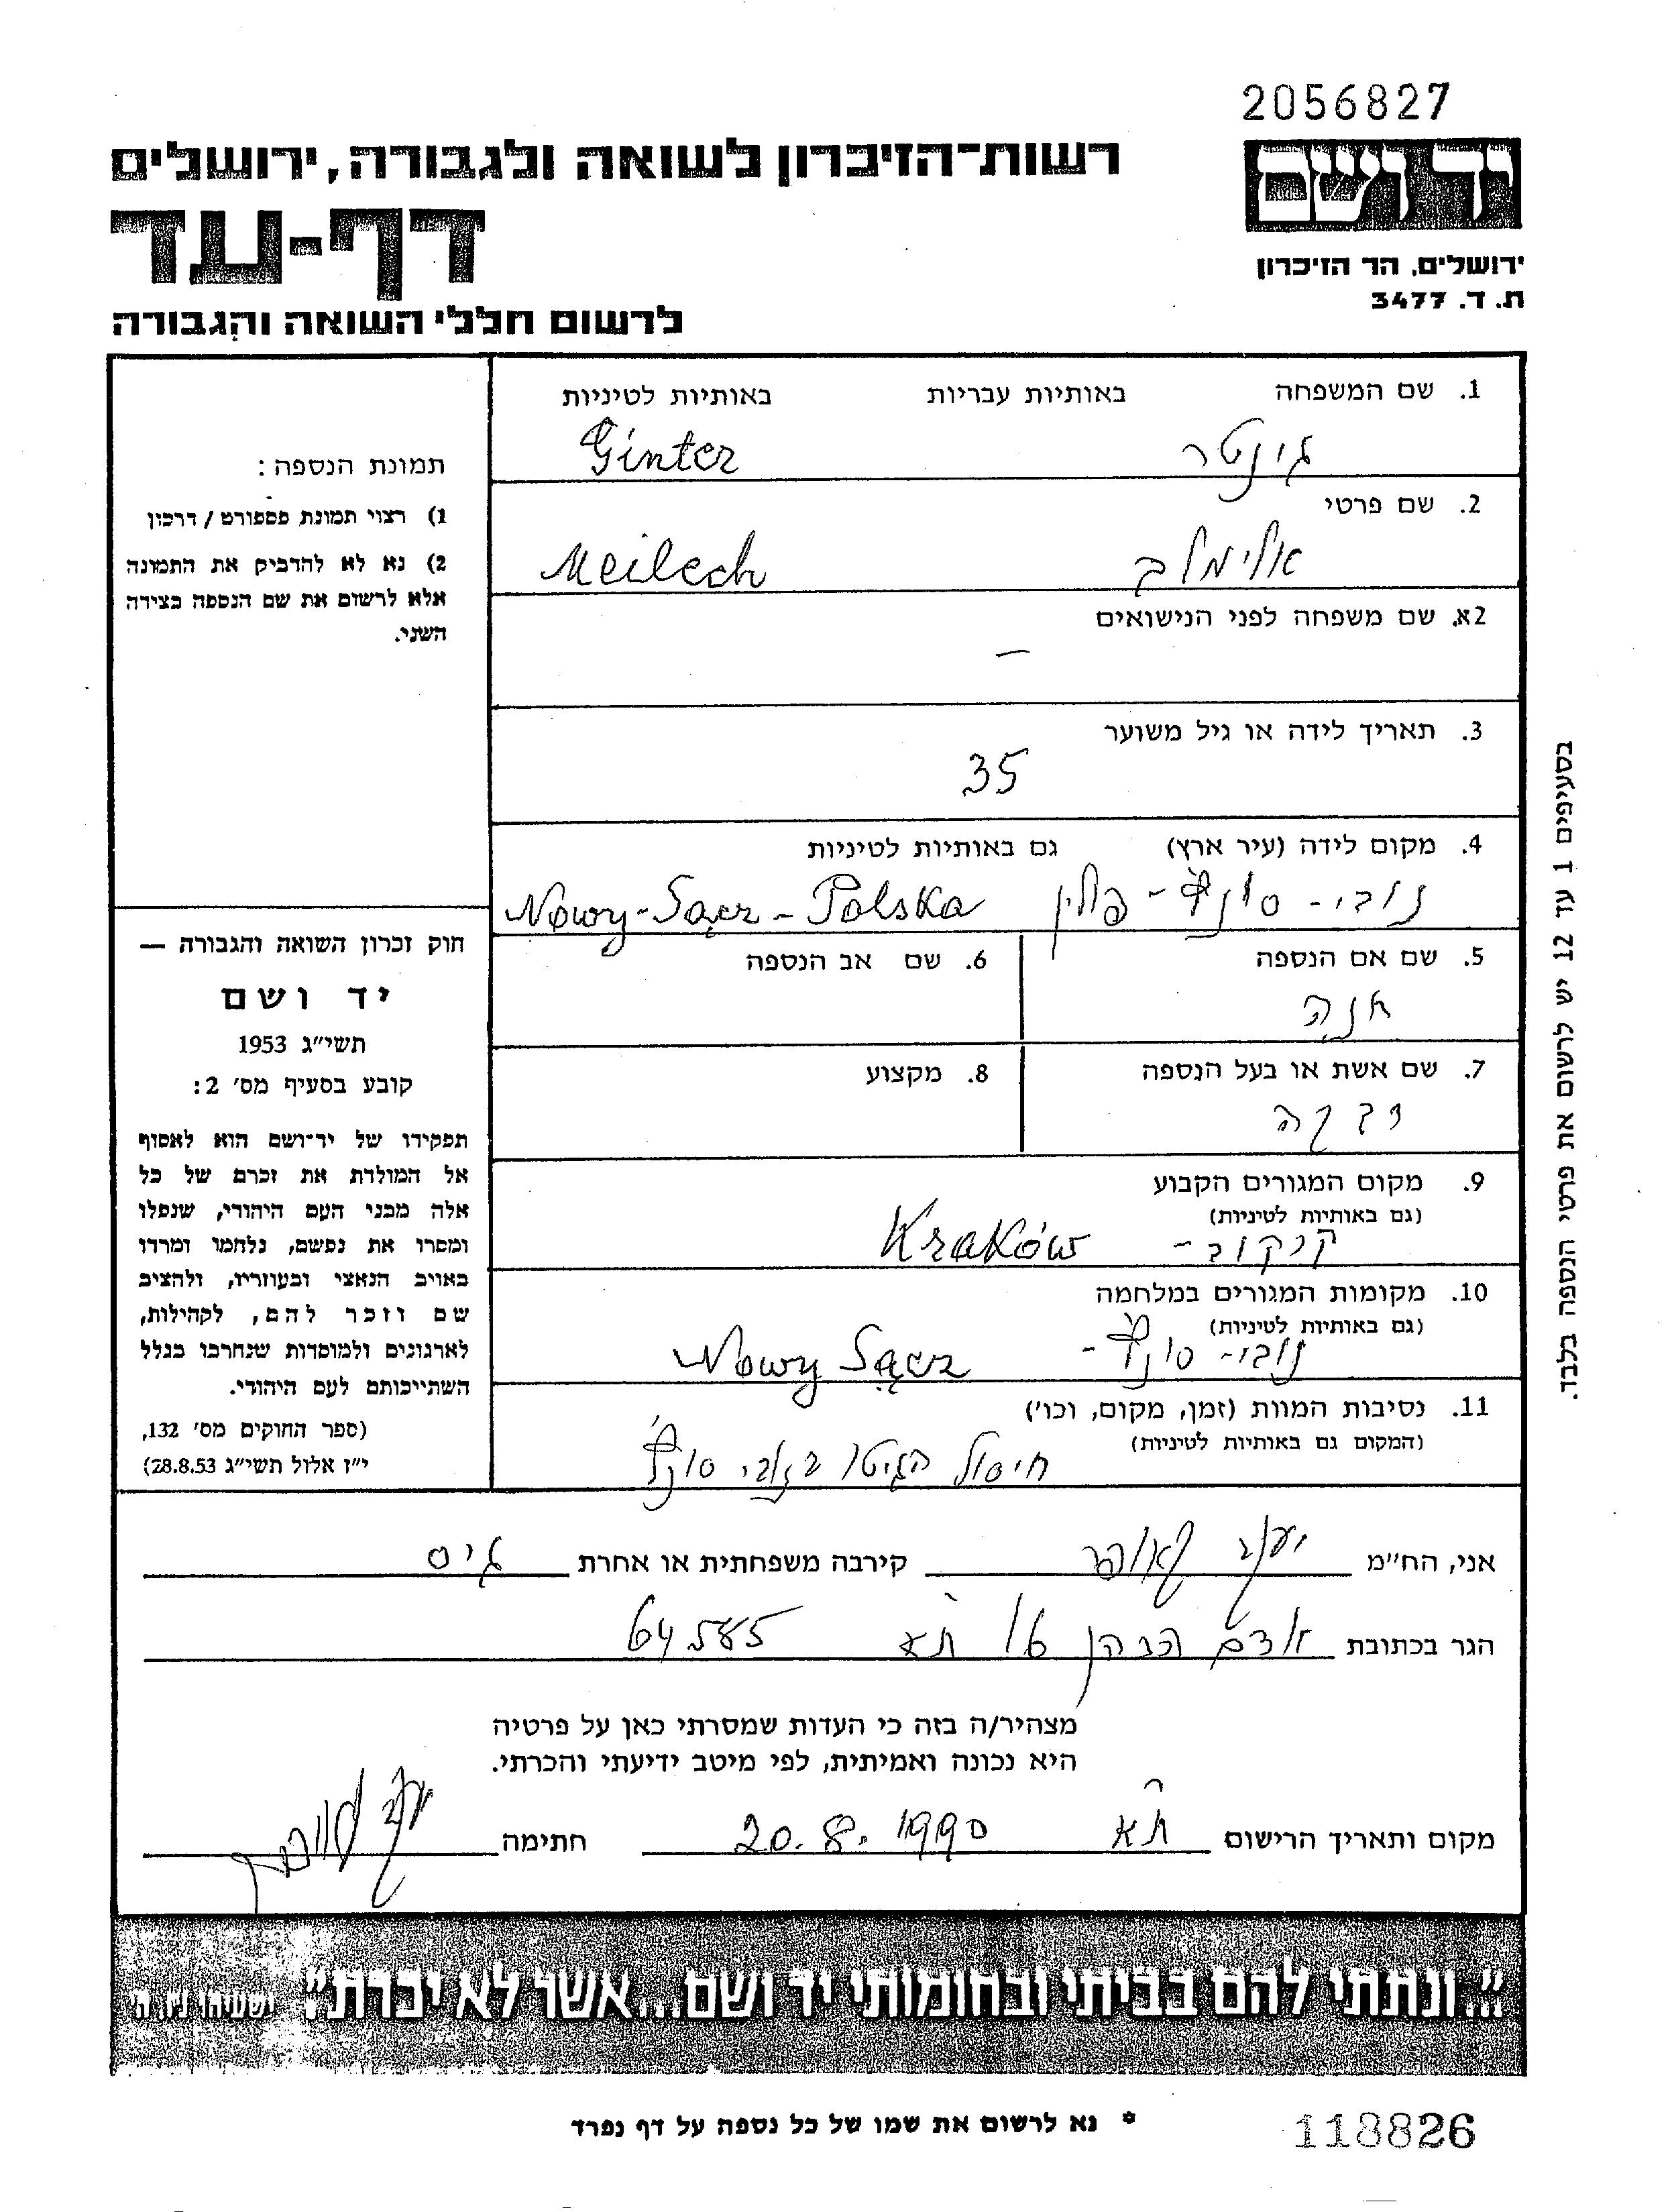 2056827
יד ושם
רשות־הזיכרון לשואה ולגבורה, ירושלים
דף-עד
ירושלים, הר הזיכרון
ת. ד. 3477
לרשום חללי השואה והגבורה
1. שם המשפחה באותיות עבריות באותיות לטיניות
גינטר Ginter
2. שם פרטי
אלימלך Meilech
2א. שם משפחה לפני הנישואים
–
3. תאריך לידה או גיל משוער
35
4. מקום לידה (עיר ארץ) גם באותיות לטיניות
נובי - סונץ' - פולין Nowy-Sącz - Polska
5. שם אם הנספה 6. שם אב הנספה
אנה
7. שם אשת או בעל הנספה 8. מקצוע
רבקה
9. מקום המגורים הקבוע
(גם באותיות לטיניות)
קרקוב - Kraków
10. מקומות המגורים במלחמה
(גם באותיות לטיניות)
נובי - סונץ' - Nowy Sącz
11. נסיבות המוות (זמן, מקום, וכו')
(המקום גם באותיות לטיניות)
חיסול הגיטו בנובי סונץ'
תמונת הנספה:
1) רצוי תמונת פספורט / דרכון
2) נא לא להדביק את התמונה
אלא לרשום את שם הנספה בצידה
השני.
חוק זכרון השואה והגבורה —
יד ושם
תשי"ג 1953
קובע בסעיף מס' 2:
תפקידו של יד־ושם הוא לאסוף
אל המולדת את זכרם של כל
אלה מבני העם היהודי, שנפלו
ומסרו את נפשם, נלחמו ומרדו
באויב הנאצי ובעוזריו, ולהציב
שם וזכר להם, לקהילות,
לארגונים ולמוסדות שנחרבו בגלל
השתייכותם לעם היהודי.
(ספר החוקים מס' 132,
י"ז אלול תשי"ג 28.8.53)
בסעיפים 1 עד 12 יש לרשום את פרטי הנספה בלבד.
אני, הח"מ יעקב קירבה משפחתית או אחרת גיס
הגר בכתובת אדם הכהן ת"א 64585
מצהיר/ה בזה כי העדות שמסרתי כאן על פרטיה
היא נכונה ואמיתית, לפי מיטב ידיעתי והכרתי.
מקום ותאריך הרישום ת"א 20.8.1990 חתימה
"...ונתתי להם בביתי ובחומותי יד ושם...אשר לא יכרת". ישעיהו נ"ו, ה'
* נא לרשום את שמו של כל נספה על דף נפרד
118826